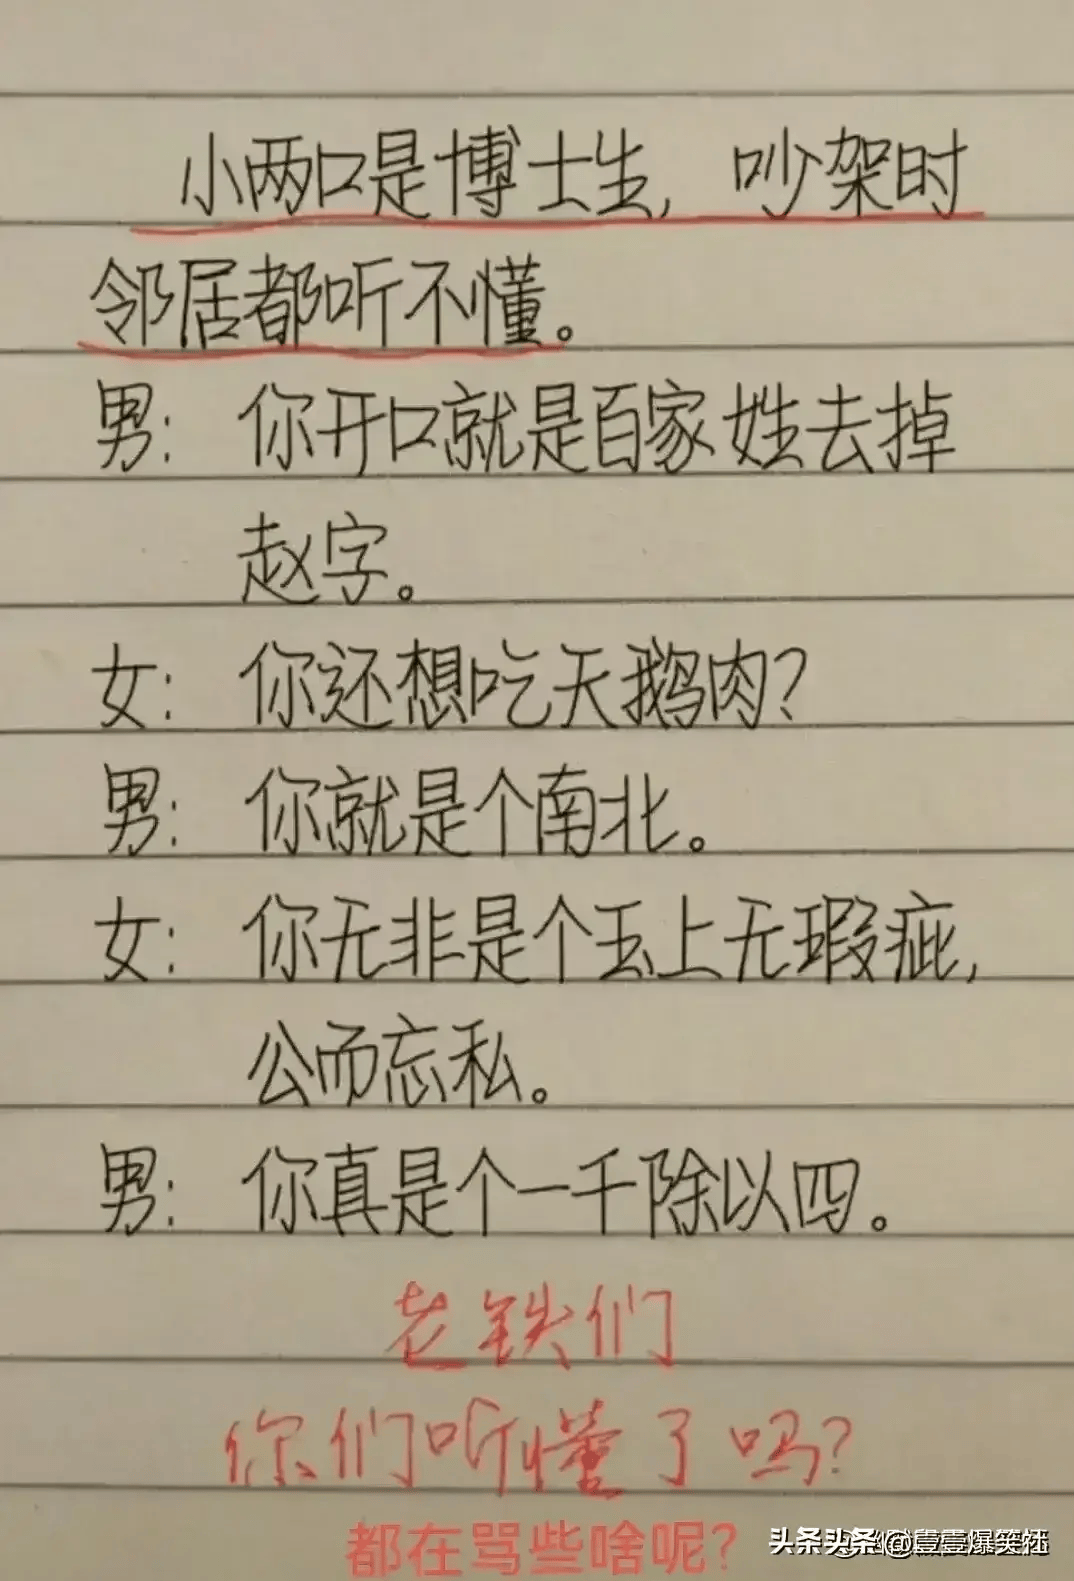 小两口是博士生，吵架时
邻居都听不懂。
男：你开口就是百家姓去掉
赵字。
女：你还想吃天鹅肉？
男：你就是个南北。
女：你无非是个玉上无瑕疵，
公而忘私。
男：你真是个一千除以四。
老铁们
你们听懂了吗？
都在骂些啥呢？
头条头条 @壹壹爆笑